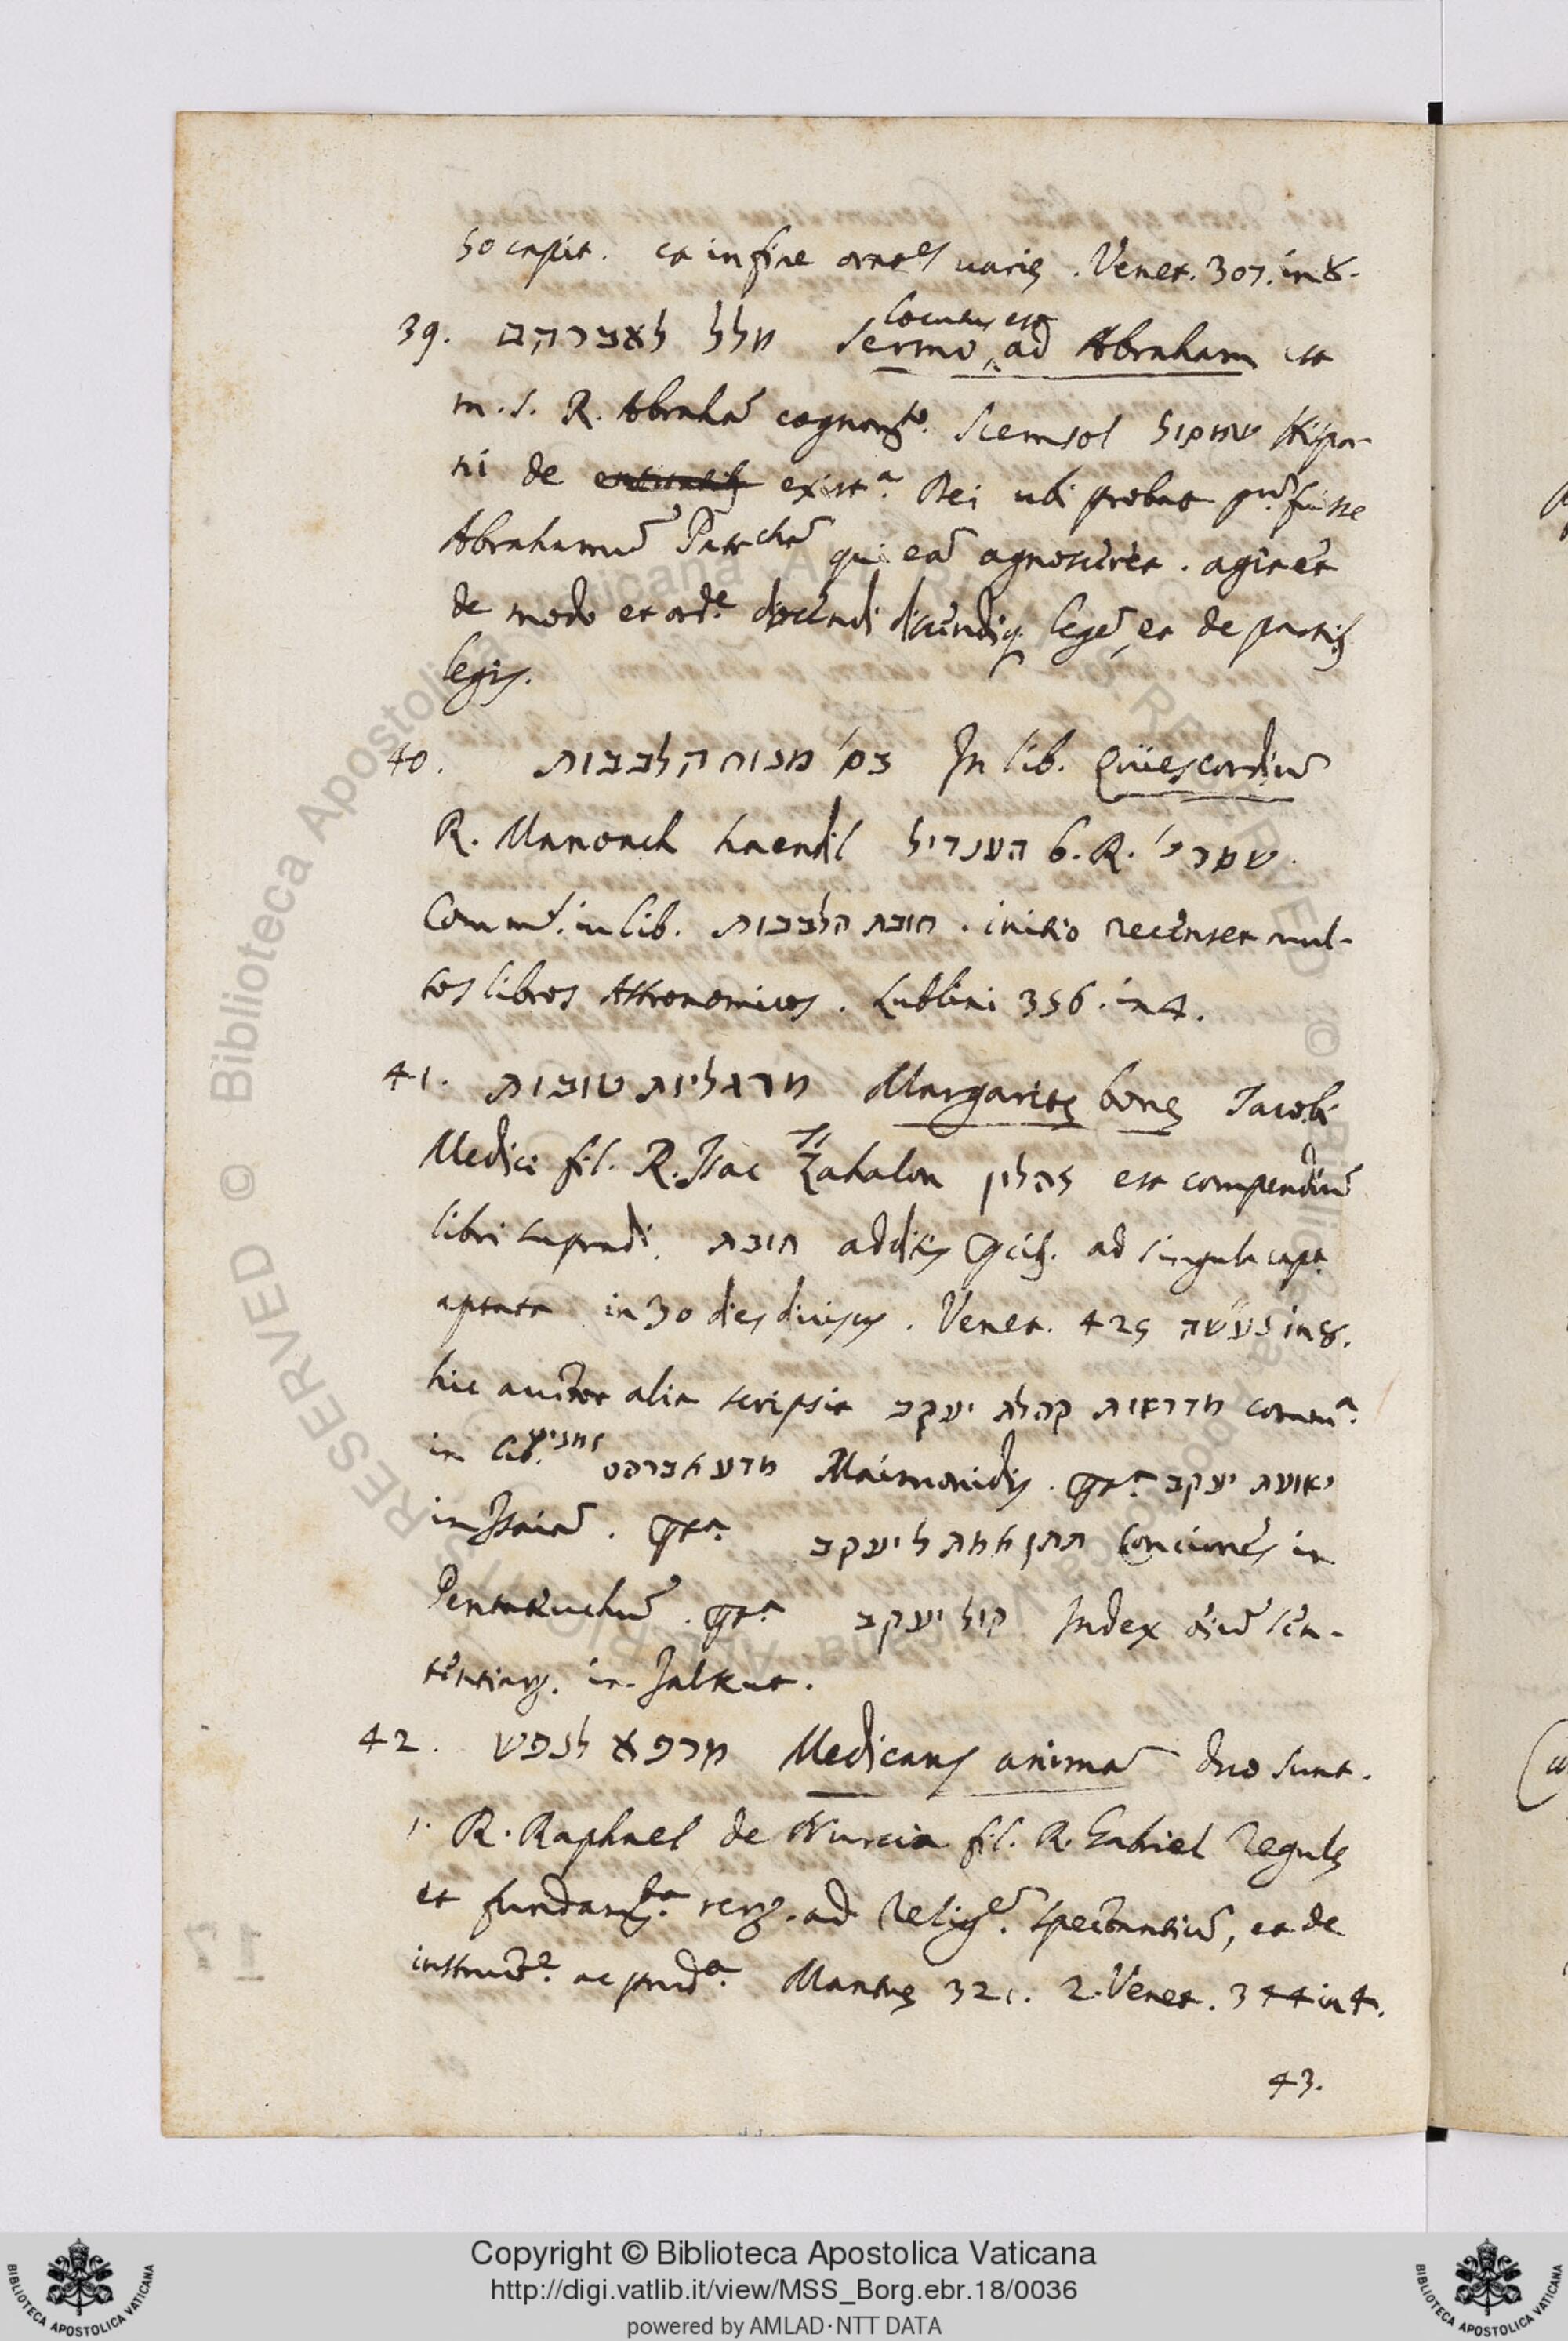 50 capit. et in fine orat.es varię. Venet. 307. in 8.
39. מלל לאברהם Sermo locutus est ad Abraham est
m.s. R. Abrahã cognom.to Scemsol שמסול Hispa-
ni de exist.a Dei ubi probat fuisse
Abrahamũ Patr.chã qui eã agnosceret. agitet
de modo et ord.e docendi discendiq; legẽ, et de partib;
legis.
40. בס' מנוח הלבבות In lib. Quies cordiũ
R. Manoach haendil הענדיל b. R. שמרי'
Comm.t in lib. חובת הלבבות. initio recenset mul-
tos libros Astronomicos. Lublini 356. in 4.
41. מרגליות טובות Margaritę bonę Jacobi
Medici fil. R. Isac Zahalon זהלון est compendiũ
libri supradi. חובת additis ad singula cap.a
aptata in 30 dies divisus. Venet. 425 נעשה in 8.
hic auctor alia scripsit מרראות קהלת יעקב comm.a
in lib. מדע Maimonidis. ישועת יעקב
in Isaiã. תתן אמת ליעקב Conciones in
Pentateuchũ. קול יעקב Index oĩũ sen-
tentiarum. in Jalkut.
42. מרפא לנפש Medicans animã duo sunt.
1. R. Raphael de Nurcia fil. R. Gabriel regulę
et fundam.ta rerum. ad Relig.ẽ spectantiũ, et de
instruct.e ac prud.a Mantuę 321. 2. Venet. 344 in 4.
43.
Copyright © Biblioteca Apostolica Vaticana
http://digi.vatlib.it/view/MSS_Borg.ebr.18/0036
powered by AMLAD·NTT DATA